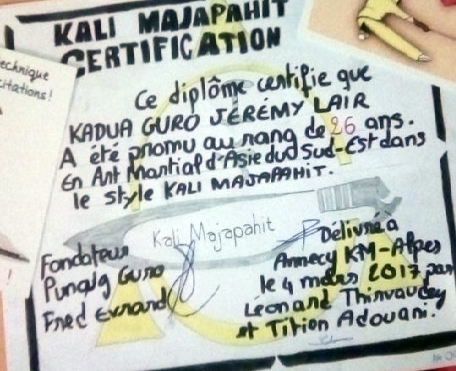 KALI MAJAPAHIT
CERTIFICATION
echnique
citations!
Ce diplôme certifie que
KADUA GURO JÉRÉMY LAIR
A été promu au rang de 26 ans.
En Art Martial d'Asie dud Sud-Est dans
le style KALI MAJAPAHIT.
Kali Majapahit
Fondateur
Punong Guro
Fred Evrard
Délivré à
Annecy KM-Alpes
le 4 mars 2017 par
Léonard
et Tition Adouani.